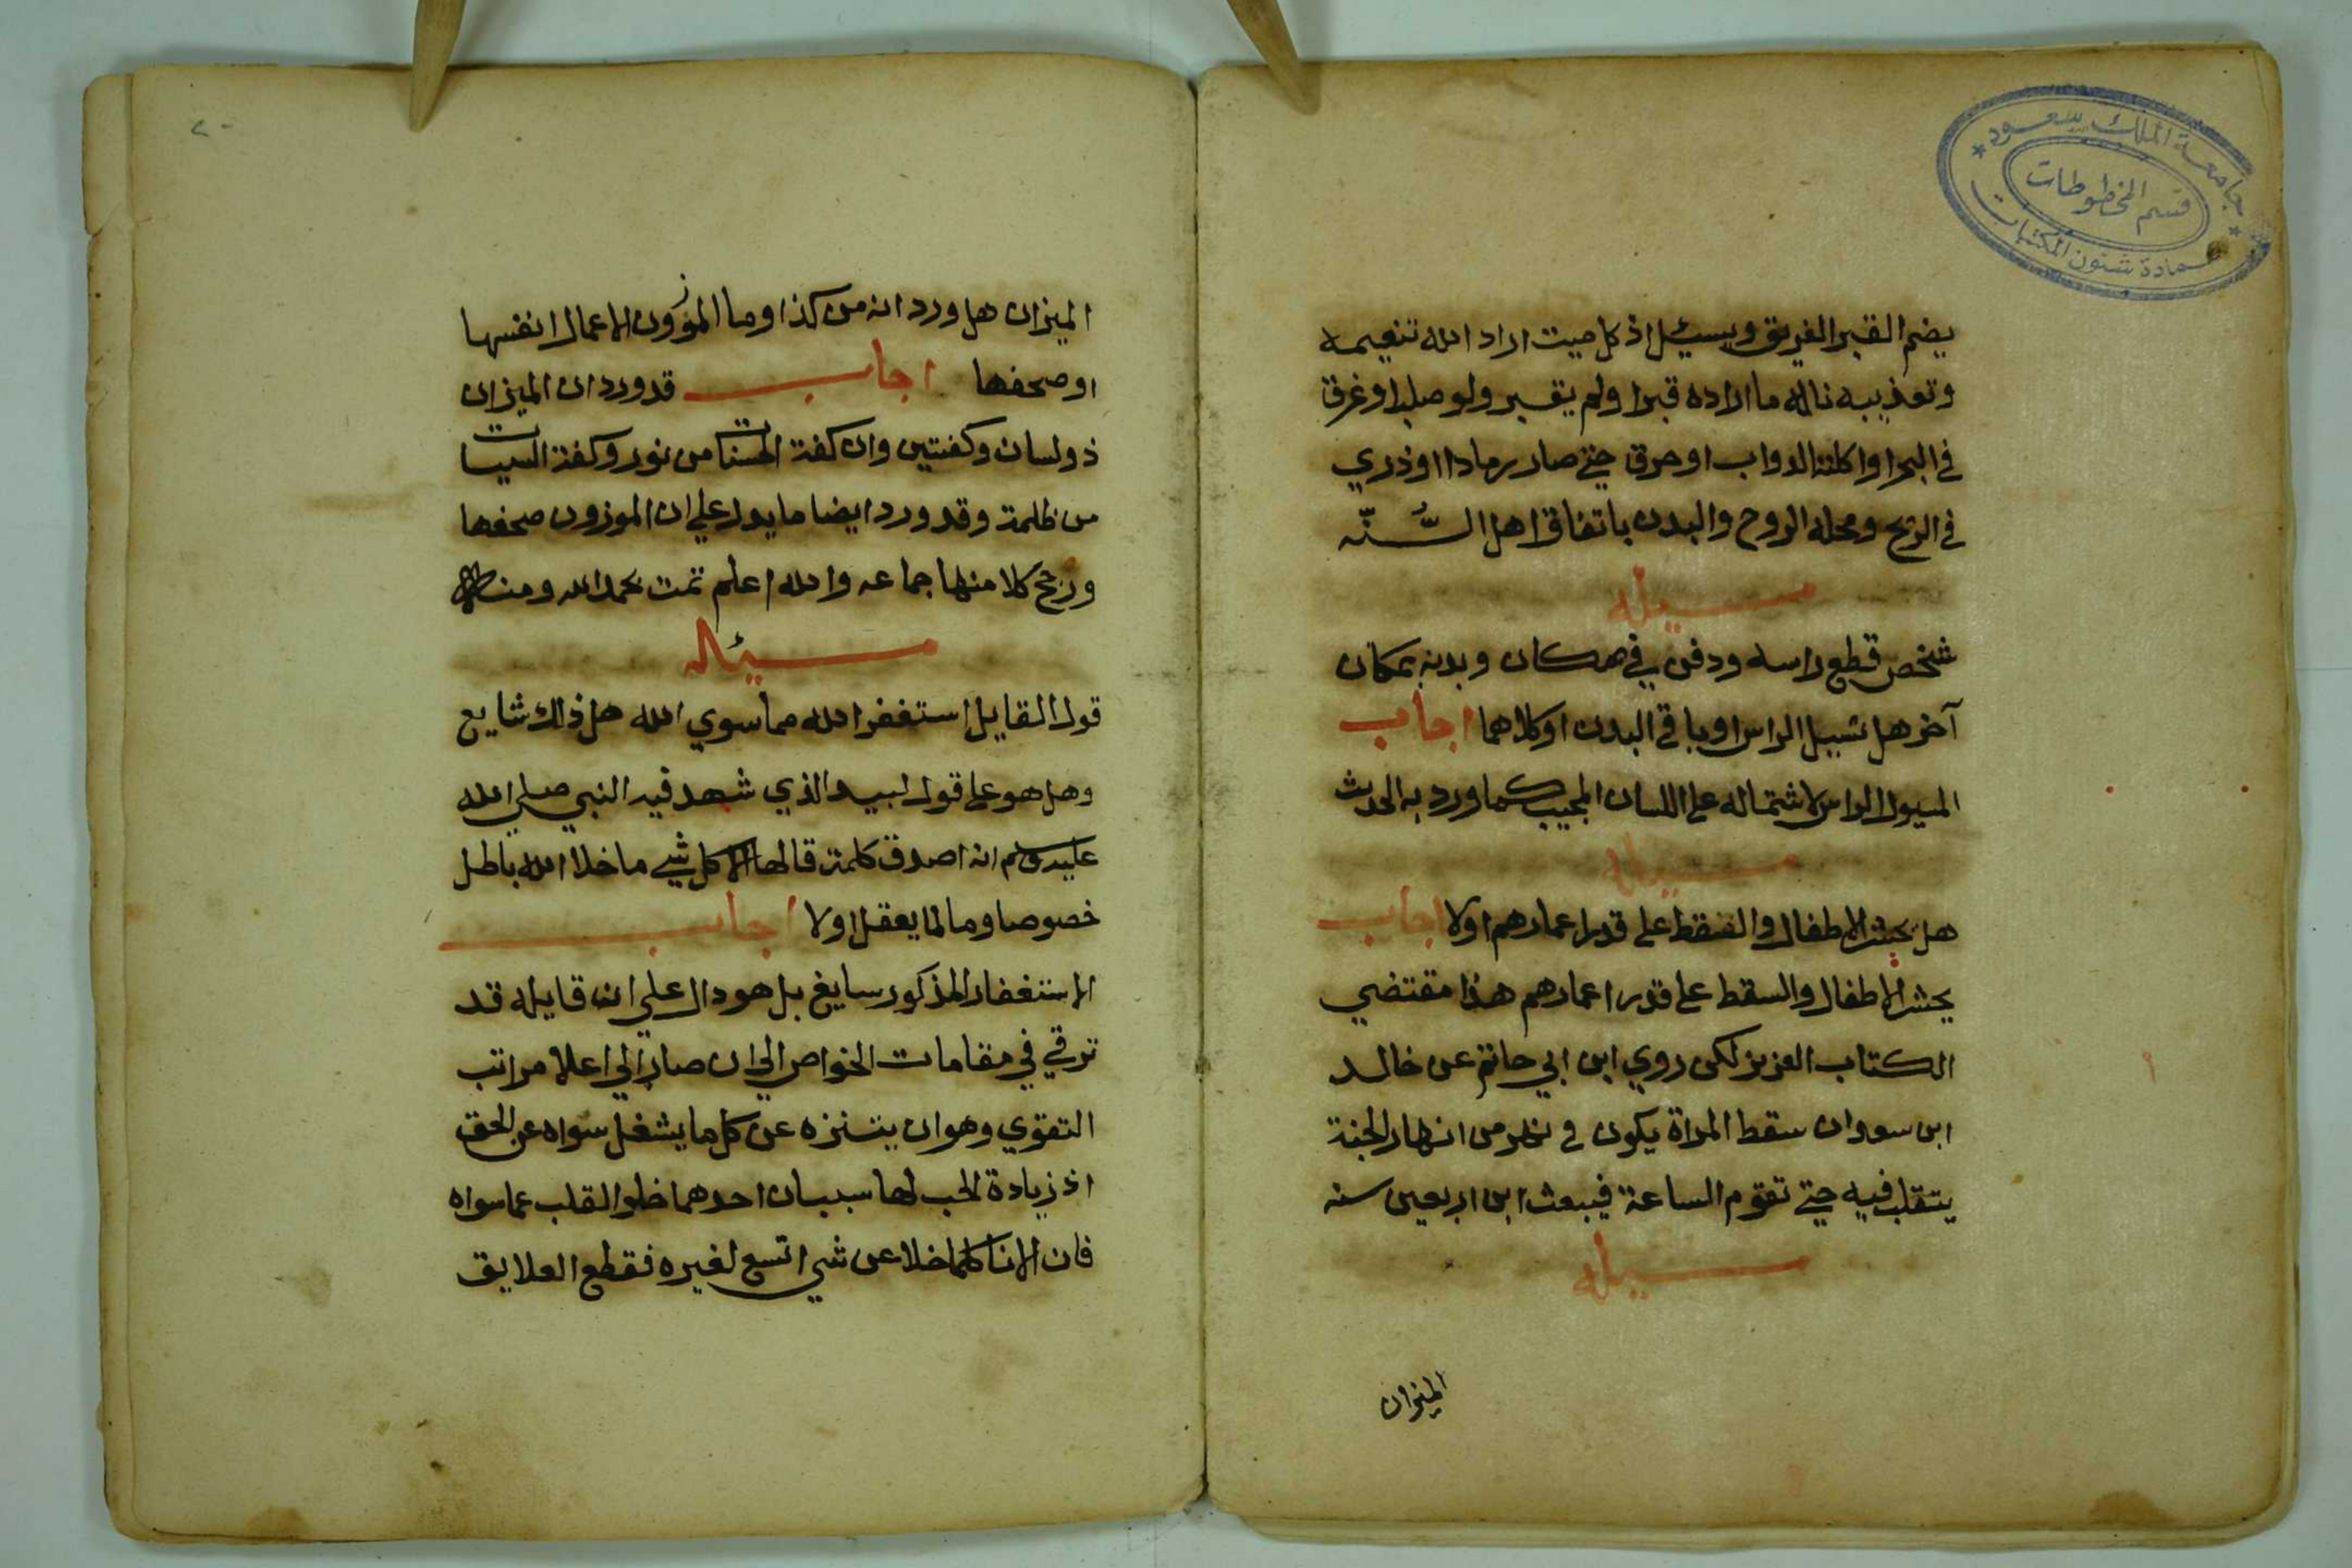 جامعة الملك سعود
قسم المخطوطات
عمادة شئون المكتبات
يضم القبر الغريق ويسئل اذ كل ميت اراد الله تنعيمه
وتعذيبه ناله ما اراده قبرا ولم يقبر ولو صلبا او غرق
في البحر او اكلته الدواب او حرق حتى صار رمادا او ذري
في الريح ومحله الروح والبدن باتفاق اهل السُّنّه
مسيله
شخص قطع راسه ودفن في مكان وبدنه بمكان
آخر هل تسيل الراس او باقي البدن او كلاهما اجاب
المسيول الراس لاشتماله على اللسان المجيب كما ورد به الحديث
مسياله
هل يحشر الاطفال والسقط على قدر اعمارهم اولا اجاب
يحشر الاطفال والسقط على قدر اعمارهم هذا مقتضي
الكتاب العزيز لكن روي ابن ابي حاتم عن خالد
ابن سعدان سقط المراة يكون في نهر من انهار الجنة
يتقلب فيه حتى تقوم الساعة فيبعث ابن اربعين سنه
مسيله
الميزان
٢٠
الميزان هل ورد انه من كذا وما الموزون الاعمال انفسها
او صحفها اجاب قد ورد ان الميزان
ذو لسان وكفتين وان كفة الحسنات من نور وكفة السيات
من ظلمة وقد ورد ايضا ما يدل علي ان الموزون صحفها
ورجح كلا منها جماعه والله اعلم تمت بحمد الله ومنه
مسئاله
قول القايل استغفر الله مما سوي الله هل ذلك شايع
وهل هو على قول لبيد الذي شهد فيه النبي صلي الله
عليه وسلم انه اصدق كلمة قالها الا كل شي ما خلا الله باطل
خصوصا وما لما يعقل اولا اجاب
الاستغفار المذكور سايغ بل هو دال علي ان قايله قد
ترقي في مقامات الخواص الي ان صار الي اعلا مراتب
التقوي وهو ان يتنزه عن كل ما يشغل سواه عن الحق
اذ زيادة الحب لها سببان احدهما خلو القلب عما سواه
فان الانا كلما خلا عن شي اتسع لغيره فقطع العلايق